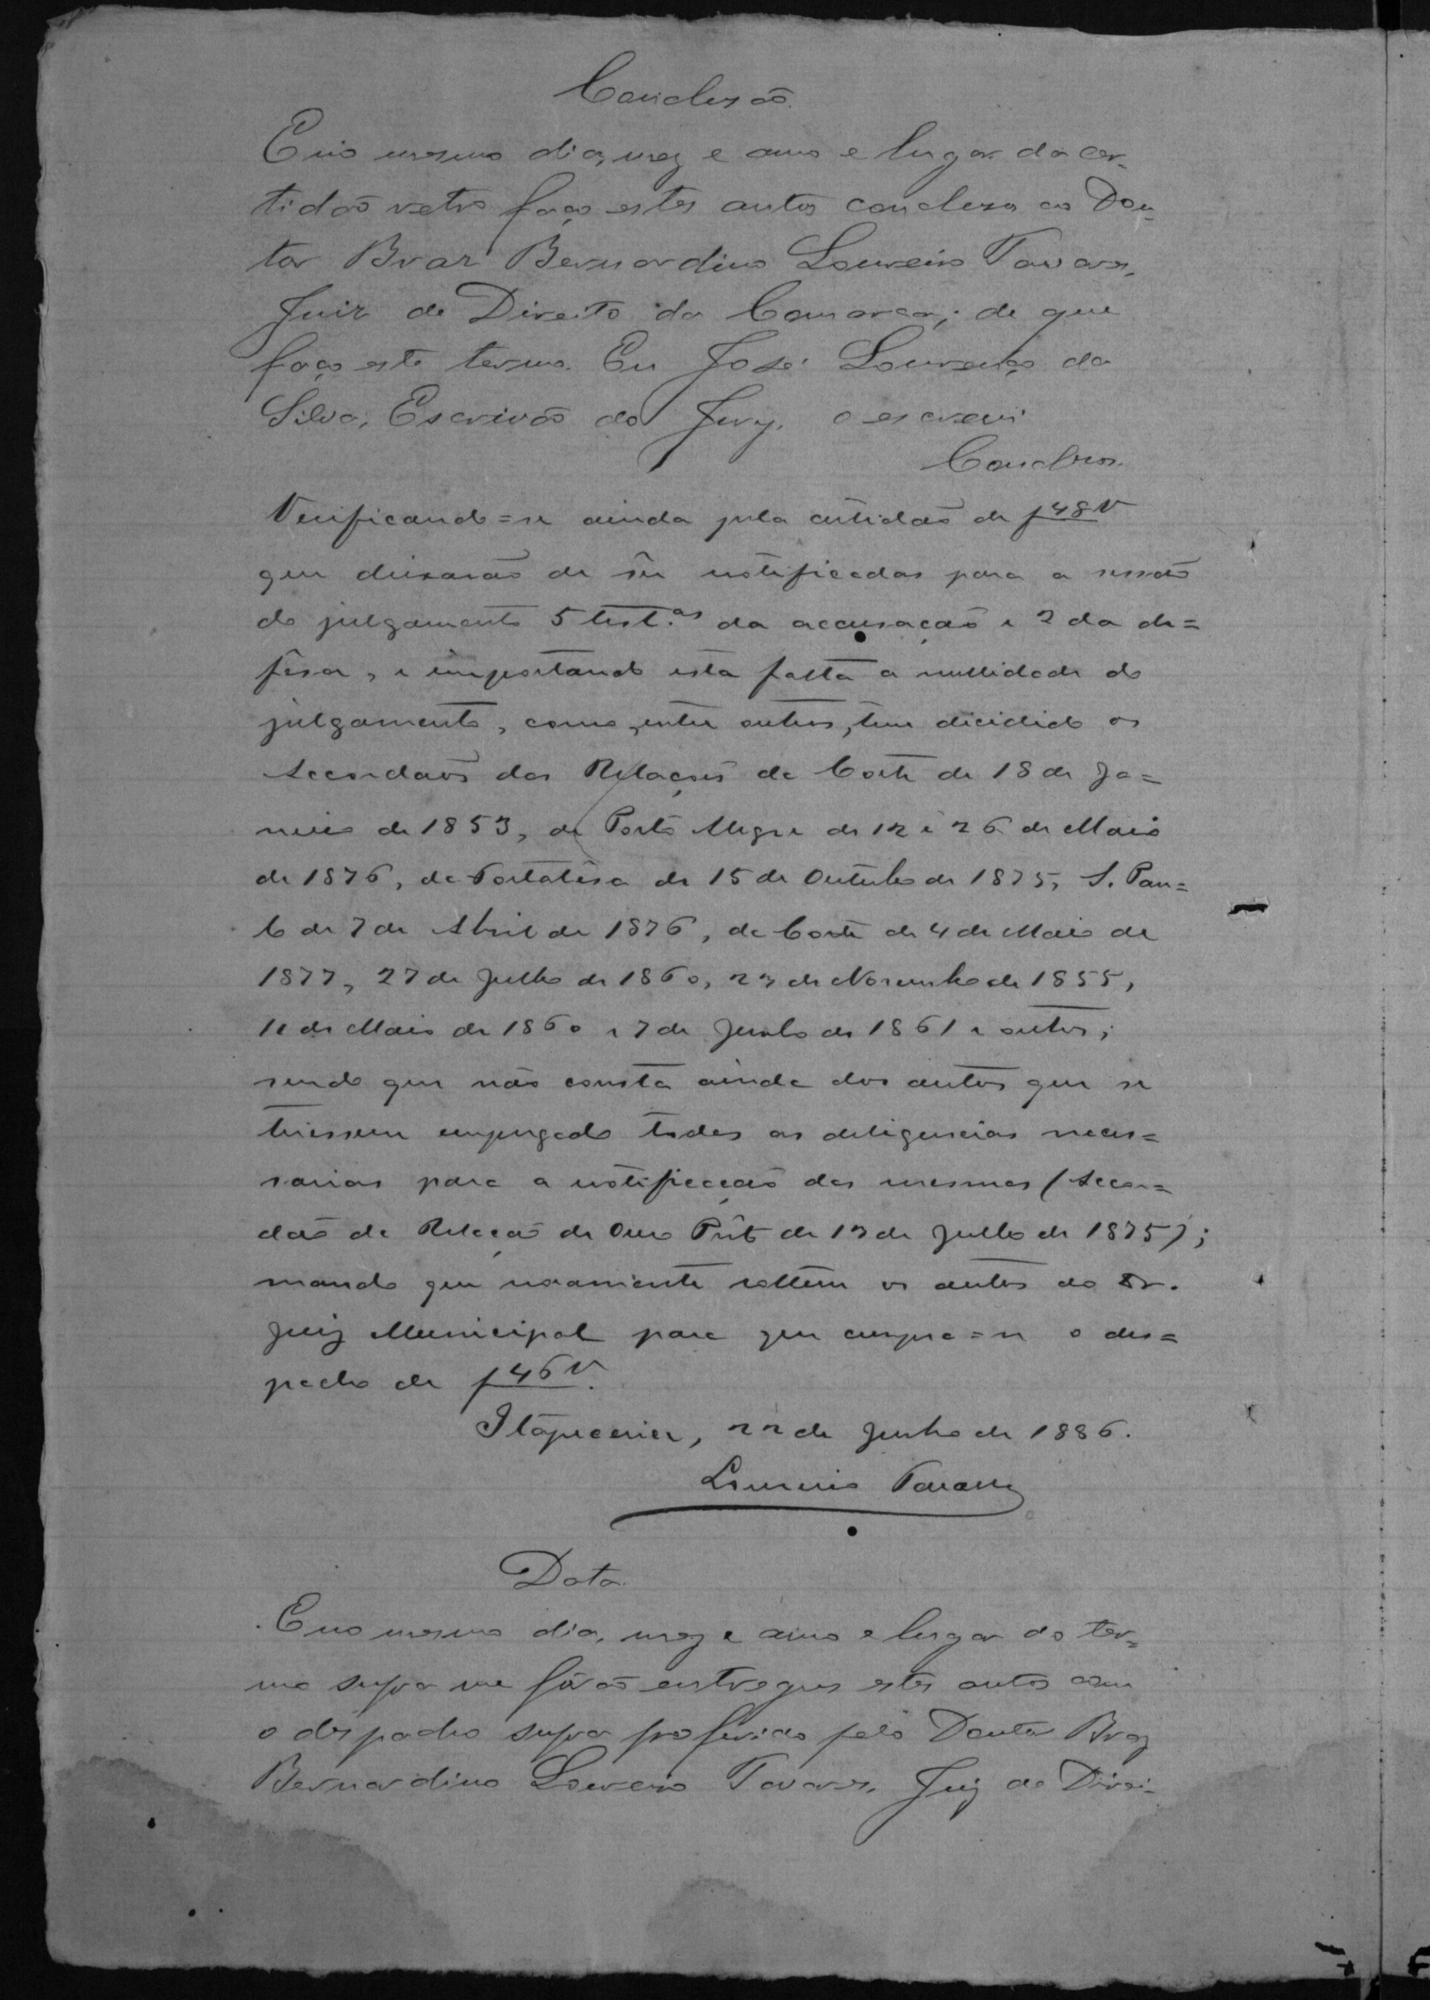 Conclusão.
E no mesmo dia, mez e anno e lugar da cer-
tidão retro faço estes autos conclusos ao Dou-
tor Braz Bernardino Loureiro Tavares,
Juiz de Direito da Comarca; de que
faço este termo. Eu José Lourenço da
Silva, Escrivão do Jury, o escrevi
Conclusos.
Verificando=se ainda pela certidão de f 48 v
que deixarão de sêr notificadas para a sessão
do julgamento 5 test.as da accusação e 2 da de=
fêsa, e importando esta falta a nullidade do
julgamento, como, entre outros, tem dicidido os
Accordaõs das Relações da Corte de 18 de Ja=
neiro de 1853, de Porto Alegre de 12 e 26 de Maio
de 1876, da Fortalêsa de 15 de Outubro de 1875, S. Pau=
lo de 7 de Abril de 1876, da Corte de 4 de Maio de
1877, 27 de Julho de 1860, 23 de Novembro de 1855,
11 de Maio de 1860 e 7 de Junho de 1861 e outros;
sendo que não consta ainda dos autos que se
tivessem empregado todas as deligencias neces=
sarias para a notificação das mesmas (Accor=
dão da Relação de Ouro Prêto de 13 de Julho de 1875);
mando que novamente voltem os autos ao Dr.
Juiz Municipal para que cumpra=se o des=
pacho de f 46 v.
Itapecerica, 22 de Junho de 1886.
Loureiro Tavares
Data.
E no mesmo dia, mez e anno e lugar do ter-
mo supra me fôrão entregues estes autos com
o despacho supra proferido pelo Doutor Braz
Bernardino Loureiro Tavares, Juiz de Direi-